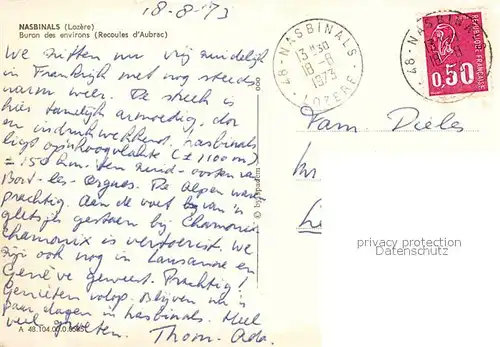 18-8-'73
NASBINALS (Lozère)
Buron des environs (Recoules d'Aubrac)
We zitten nu vrij zuidelijk
in Frankrijk met nog steeds
warm weer. De streek is
hier tamelijk armoedig, doch
en indrukwekkend. Nasbinals
ligt op'n hoogvlakte (± 1100 m)
± 150 km. ten zuid-oosten van
Bort-les-Orgues. De Alpen waren
prachtig. Aan de voet van 'n
gletsjer gestaan bij Chamonix.
Chamonix is vertoerist. We
zijn ook nog in Lausanne en
Genève geweest. Prachtig!
Genieten volop. Blijven nu 'n
paar dagen in Nasbinals. Heel
veel groeten. Thom. Ada.
A 48.104.00.0.
© by
48 - NASBINALS -
13 H 30
18-8
1973
LOZERE
48 - NASBINALS
RÉPUBLIQUE FRANÇAISE
0,50
Fam. Dieles
privacy protection
DatenSchutz